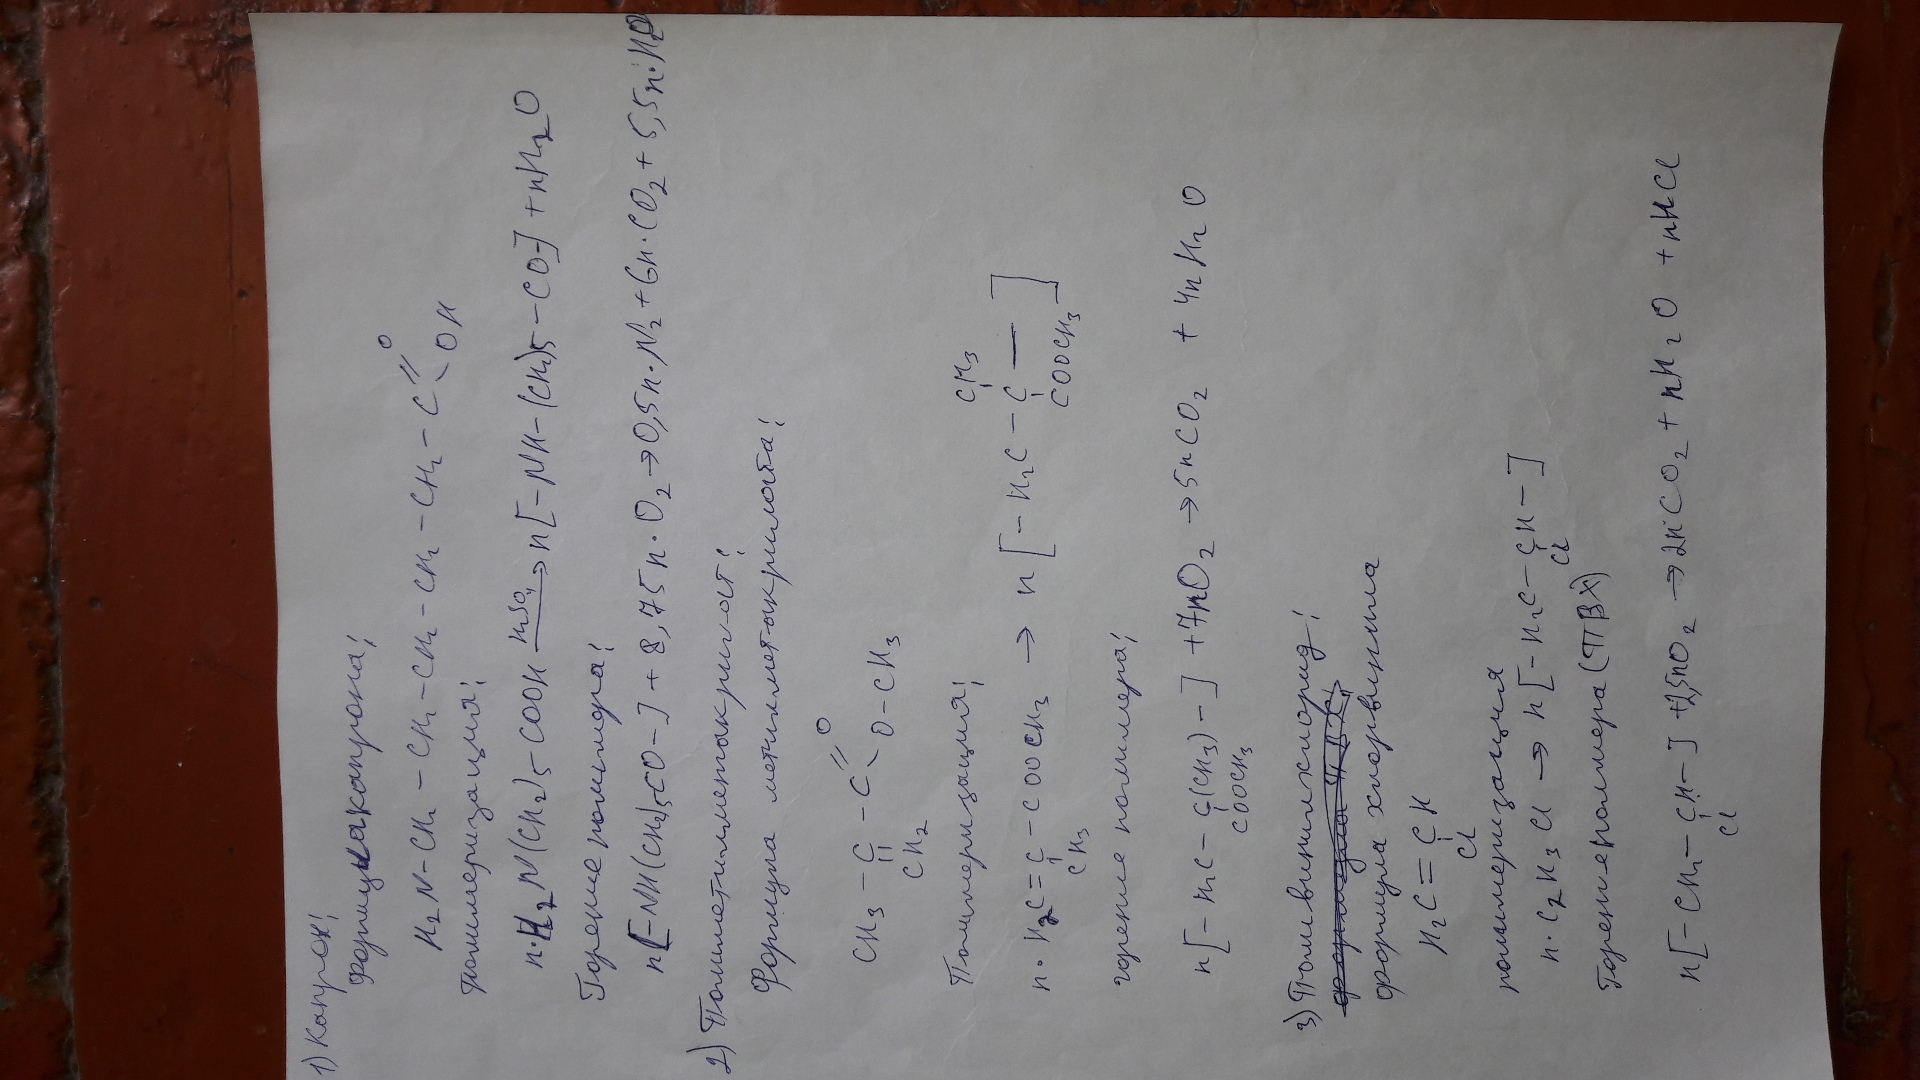 1) Капрон:
Формула капрона:
H₂N–CH₂–CH₂–CH₂–CH₂–CH₂–C
O
OH
Полимеризация:
n·H₂N(CH₂)₅COOH → n[–NH–(CH₂)5–CO–] + nH₂O
Горение полимера:
n[–NH(CH₂)₅CO–] + 8,75n·O₂ → 0,5n·N₂ + 6n·CO₂ + 5,5n·H₂O
2) Полиметилметакрилат:
Формула метилметакрилата:
CH₃ – C – C
O
O–CH₃
CH₂
Полимеризация:
CH₃
n·H₂C=C–COOCH₃ → n[–H₂C–C—]
CH₃
COOCH₃
горение полимера:
n[–H₂C–C(CH₃)–] + 7nO₂ → 5nCO₂ + 4nH₂O
COOCH₃
3) Поливинилхлорид:
формула хлорвинила
H₂C=CH
Cl
полимеризация
n·C₂H₃Cl → n[–H₂C–CH–]
Cl
Горение полимера (ПВХ)
n[–CH₂–CH–] + 2,5nO₂ → 2nCO₂ + nH₂O + nHCl
Cl